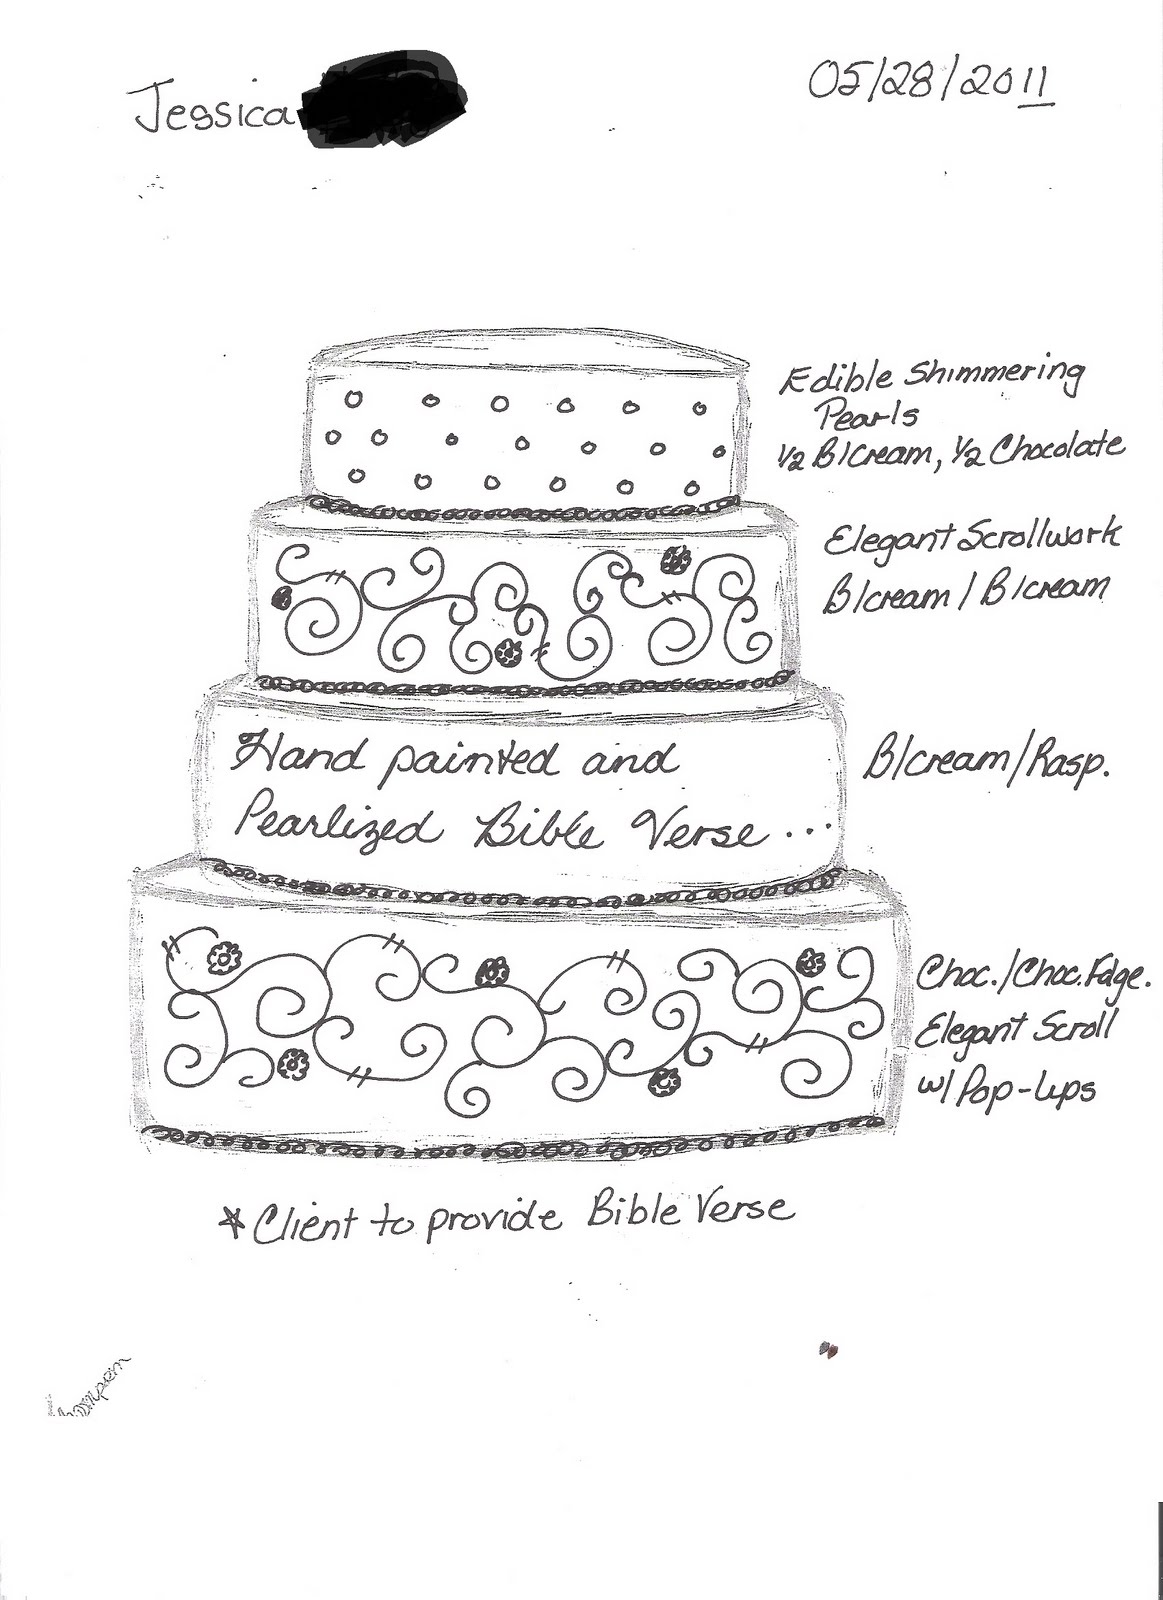 Jessica
05/28/2011
Edible Shimmering
Pearls
1/2 B/cream, 1/2 Chocolate
Elegant Scrollwork
B/cream / B/cream
Hand painted and
Pearlized Bible Verse...
B/cream/Rasp.
Choc./Choc.Fdge.
Elegant Scroll
w/ Pop-ups
*Client to provide Bible Verse